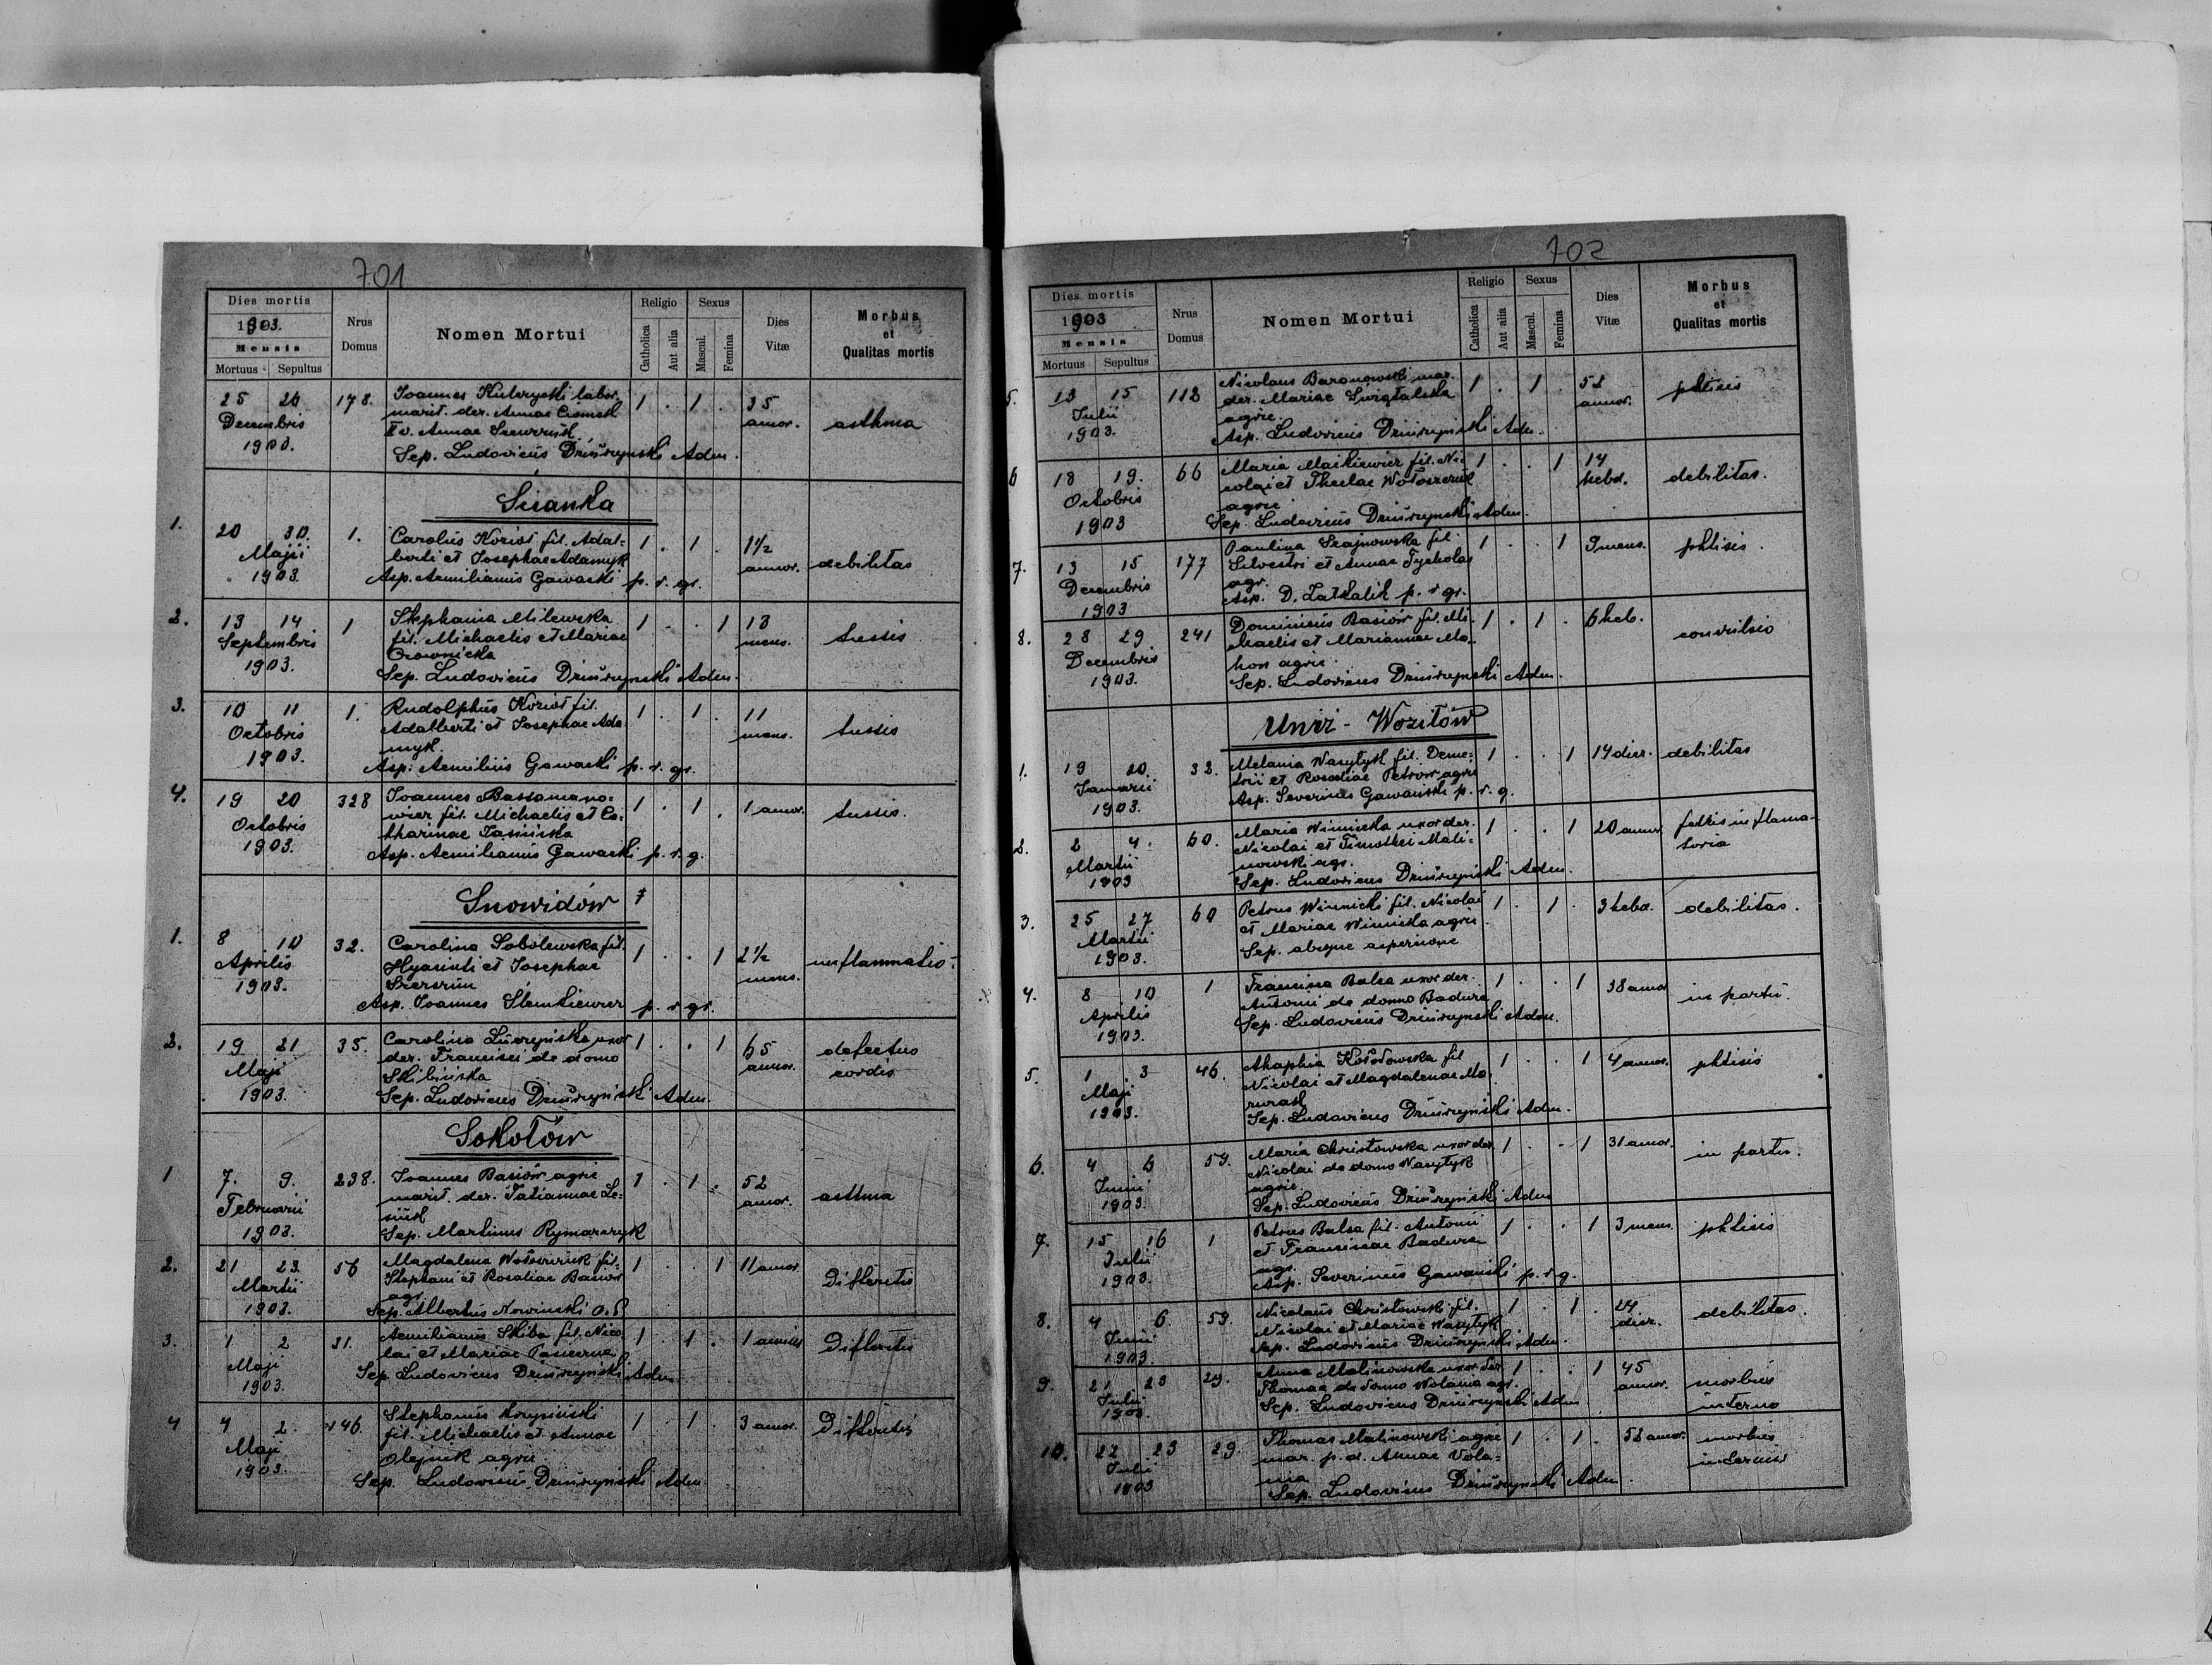 701
Dies mortis
1903.
Mensis
Mortuus Sepultus
Nrus Domus
Nomen Mortui
Religio
Catholica
Aut alia
Sexus
Mascul.
Femina
Dies Vitæ
Morbus et Qualitas mortis
25 26 178. Joannes labor. 1 . 1 . 35
Decembris marit. der. Annae amor. asthma
1903. II v. Annae
Sep. Ludovicus Driurzynski Adm.
Scianka
1. 20 30. 1. Carolus Kozioł fil. Adal- 1 . 1 . 1 1/2
Maji berti et Josephae Adamyk annor. debilitas
1903. Asp. Aemilianus Gawacki p. r. gr.
2. 13 14 1 Stephania Milewska 1 . . 1 13
Septembris fil. Michaelis et Mariae mens. tussis
1903.
Sep. Ludovicus Driurzynski Adm.
3. 10 11 1. Rudolphus Kozioł fil. 1 . 1 . 11
Octobris Adalberti et Josephae Ada mens. tussis
1903. myk.
Asp. Aemilius Gawacki p. r. gr.
4. 19 20 328 Joannes 1 . 1 . 1 amor. tussis.
Octobris fil. Michaelis et Ca-
1903. tharinae Jasińska
Asp. Aemilianus Gawacki p. r. g.
Snowidów
1. 8 10 32. Carolina Sobolewska fil. 1 . . 1 2 1/2
Aprilis Hyacinti et Josephae mens. inflammatio.
1903.
Asp. Joannes p. r. gr.
2. 19 21 35. Carolina uxor 1 . . 1 65 defectus
Maji der. Francisci de domo annor. cordis
1903. Skibińska
Sep. Ludovicus Driurzynski Adm.
Sokołów
1 7. 9. 238. Joannes Basiów agric 1 . 1 . 52
Februarii marit. der. Tatiannae Le- amor. asthma
1903. siuk
Sep. Martinus Rymarczyk
2. 21 23. 56 Magdalena Wołoszczuk fil. 1 . . 1 11 amor.
Martii Stephani et Rosaliae Basiów Difteritis
1903. agr.
Sep. Albertus Nowinski O. P.
3. 1 2 31. Aemilianus Skiba fil. Nico 1 . 1 . 1 annus Difteritis
Maji lai et Mariae
1903. Sep. Ludovicus Driurzynski Adm
4 4 2. 146. Stephanus 1 . 1 . 3 amor. Difteritis
Maji fil. Michaelis et Annae
1903. Olejnik agric
Sep. Ludovicus Driurzynski Adm.
702
Dies mortis
1903
Mensis
Mortuus Sepultus
Nrus Domus
Nomen Mortui
Religio
Catholica
Aut alia
Sexus
Mascul.
Femina
Dies Vitæ
Morbus et Qualitas mortis
5. 13 15 112 Nicolaus Baranowski mar. 1 . 1 . 52 phtisis
Julii der. Mariae annor.
1903. agric.
Asp. Ludovicus Driurzynski Adm.
6 18 19. 66 Maria fil. Ni- 1 . . 1 14 debilitas.
Octobris colai et Theclae Wołoszczuk hebd.
1903 agric
Sep. Ludovicus Driurzynski Adm.
7. 13 15 177 Paulina fil. 1 . . 1 9 mens. phtisis.
Decembris Silvestri et Annae
1903 agr.
Asp. D. p. r gr.
8. 28 29 241 Dominicus Basiów fil. Mi- 1 . 1 . 6 heb. convulsio
Decembris chaelis et Mariannae Mo-
1903. hon agric.
Sep. Ludovicus Driurzynski Adm.
Uniż - Woziłów
1. 19 20. 32. Melania Wasylyk fil. Deme- 1 . . 1 14 dier. debilitas
Januarii trii et Rosaliae Petrow agric
1903. Asp. Severinus Gawański p. r. g.
2. 2 4. 60. Maria Winnicka uxor der. 1 . . 1 20 annor
Martii Nicolai et Timothei Mali-
1903 nowski agr.
Sep. Ludovicus Driurzynski Adm.
3. 25 27 60 Petrus Winnicki fil. Nicolai 1 . 1 . 3 hebd. debilitas.
Martii et Mariae Winnicka agric
1903. Sep. absque
4. 8 10 1 Francisca Balsa uxor der. 1 . . 1 38 amor in partu.
Aprilis Antonii de domo Badura
1903. Sep. Ludovicus Driurzynski Adm.
5. 1 3 46. fil 1 . . 1 4 amor. phtisis
Maji Nicolai et Magdalenae Ma-
1903. zurak
Sep. Ludovicus Driurzynski Adm.
6. 4 6 59. Maria Christowska uxor der 1 . . 1 31 amor. in partu.
Junii Nicolai de domo Wasylyk
1903. agric.
Sep. Ludovicus Driurzynski Adm
7. 15 16 1 Petrus Balsa fil. Antonii 1 . . 1 3 mens. phtisis
Julii et Franciscae Badura
1903. agr.
Asp. Severinus Gawański p. r g.
8. 4 6 59. Nicolaus Christowski fil. 1 . 1 . 24 debilitas.
Junii Nicolai et Mariae Wasylyk dier.
1903. Sep. Ludovicus Driurzynski Adm.
9. 21 23 29. Anna Malinowska uxor der 1 . . 1 45 morbus
Julii Thomae de domo Wolania agr. annor. interno
1903. Sep. Ludovicus Driurzynski Adm
10. 22 23 29. Thomas Malinowski agric 1 . 1 . 52 amor. morbus
Julii mar. p. d. Annae Vola- internus
1903 nia
Sep. Ludovicus Driurzynski Adm.